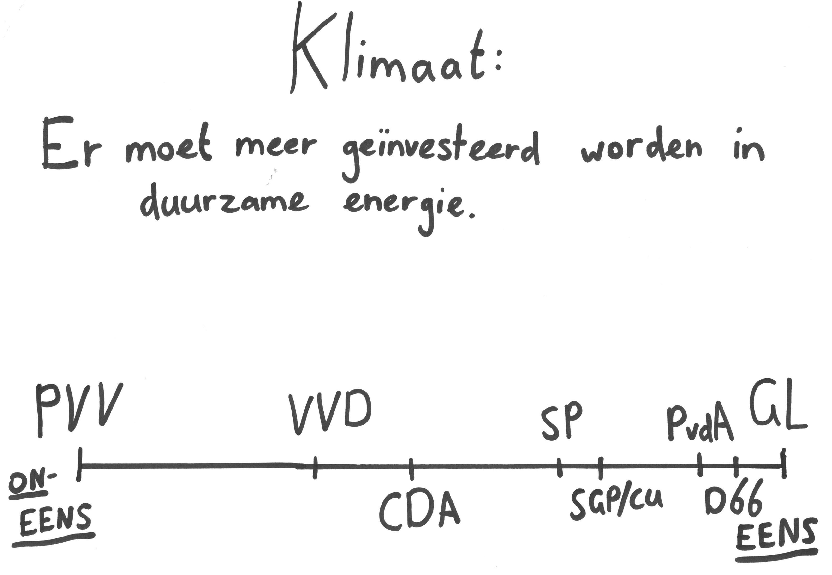 Klimaat:
Er moet meer geïnvesteerd worden in
duurzame energie.
PVV VVD SP PvdA GL
ON-
EENS
CDA SGP/CU D66
EENS